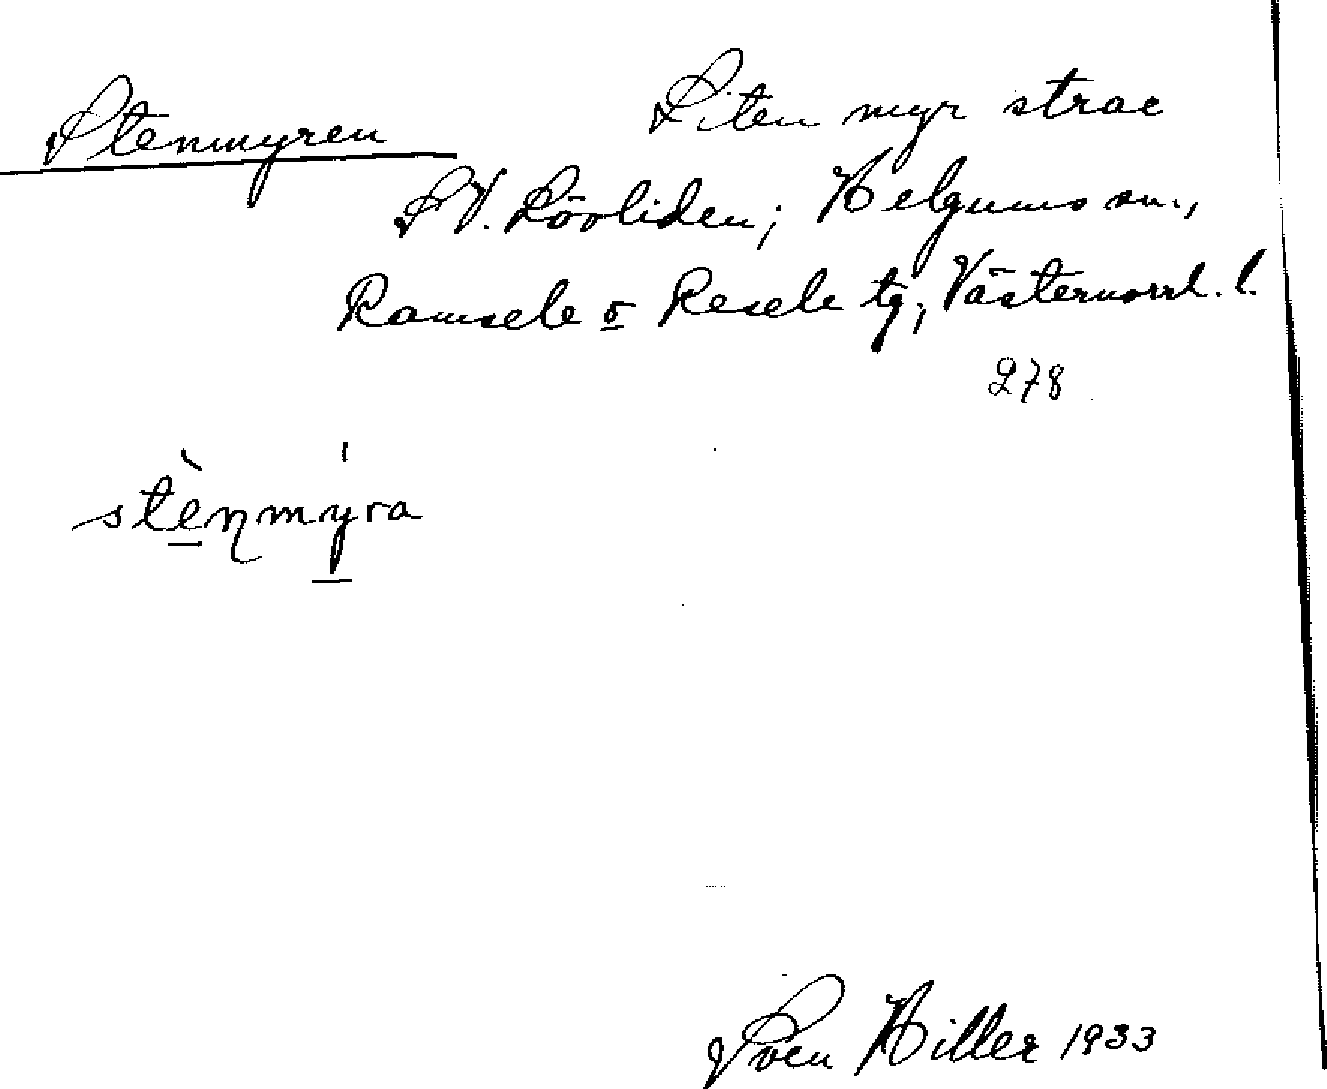 Stenmyren
Liten myr strax
S V. Lövliden; Helgums sn.,
Ramsele o Resele tg; Västernorrl. l.
278
stènmýra
Sven Hiller 1933